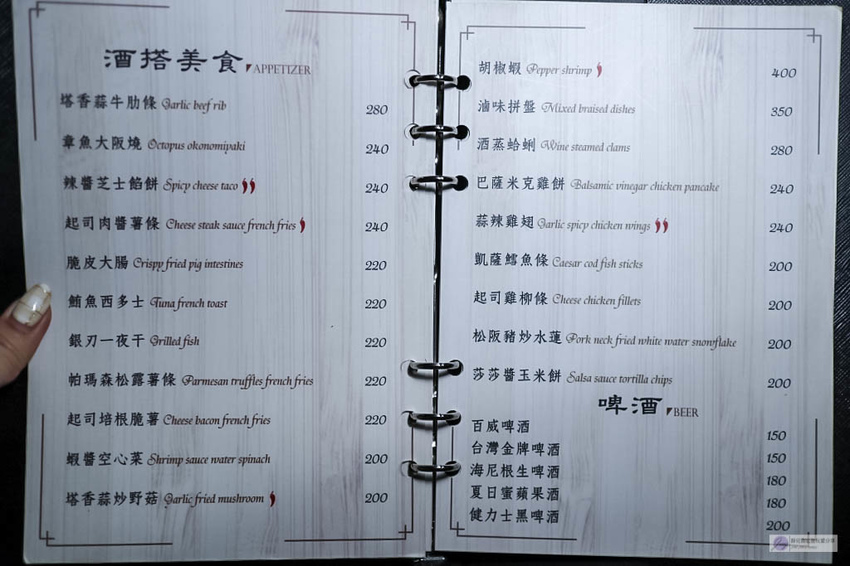 酒搭美食 APPETIZER
塔香蒜牛肋條 Garlic beef rib 280
章魚大阪燒 Octopus okonomiyaki 240
辣醬芝士餡餅 Spicy cheese taco 240
起司肉醬薯條 Cheese steak sauce french fries 240
脆皮大腸 Crispy fried pig intestines 220
鮪魚西多士 Tuna french toast 220
銀刃一夜干 Grilled fish 220
帕瑪森松露薯條 Parmesan truffles french fries 220
起司培根脆薯 Cheese bacon french fries 220
蝦醬空心菜 Shrimp sauce water spinach 200
塔香蒜炒野菇 Garlic fried mushroom 200
胡椒蝦 Pepper shrimp 400
滷味拼盤 Mixed braised dishes 350
酒蒸蛤蜊 Wine steamed clams 280
巴薩米克雞餅 Balsamic vinegar chicken pancake 240
蒜辣雞翅 Garlic spicy chicken wings 240
凱薩鱈魚條 Caesar cod fish sticks 200
起司雞柳條 Cheese chicken fillets 200
松阪豬炒水蓮 Pork neck fried white water snowflake 200
莎莎醬玉米餅 Salsa sauce tortilla chips 200
啤酒 BEER
百威啤酒 150
台灣金牌啤酒 150
海尼根生啤酒 180
夏日蜜蘋果酒 180
健力士黑啤酒 200